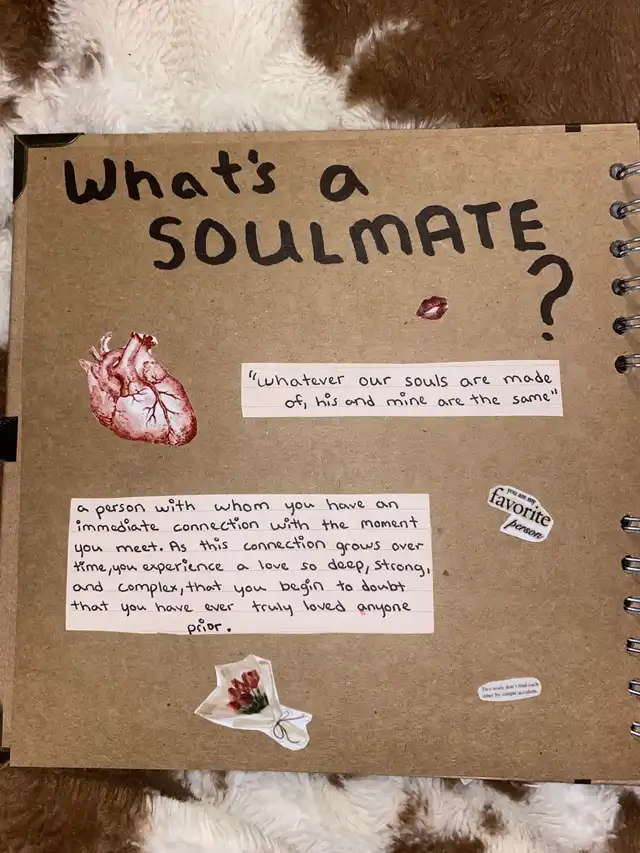 What's a
SOULMATE
?
"whatever our souls are made
of, his and mine are the same"
a person with whom you have an
immediate connection with the moment
you meet. As this connection grows over
time, you experience a love so deep, strong,
and complex, that you begin to doubt
that you have ever truly loved anyone
prior.
you are my
favorite
person
Two souls don't find each
other by simple accident.